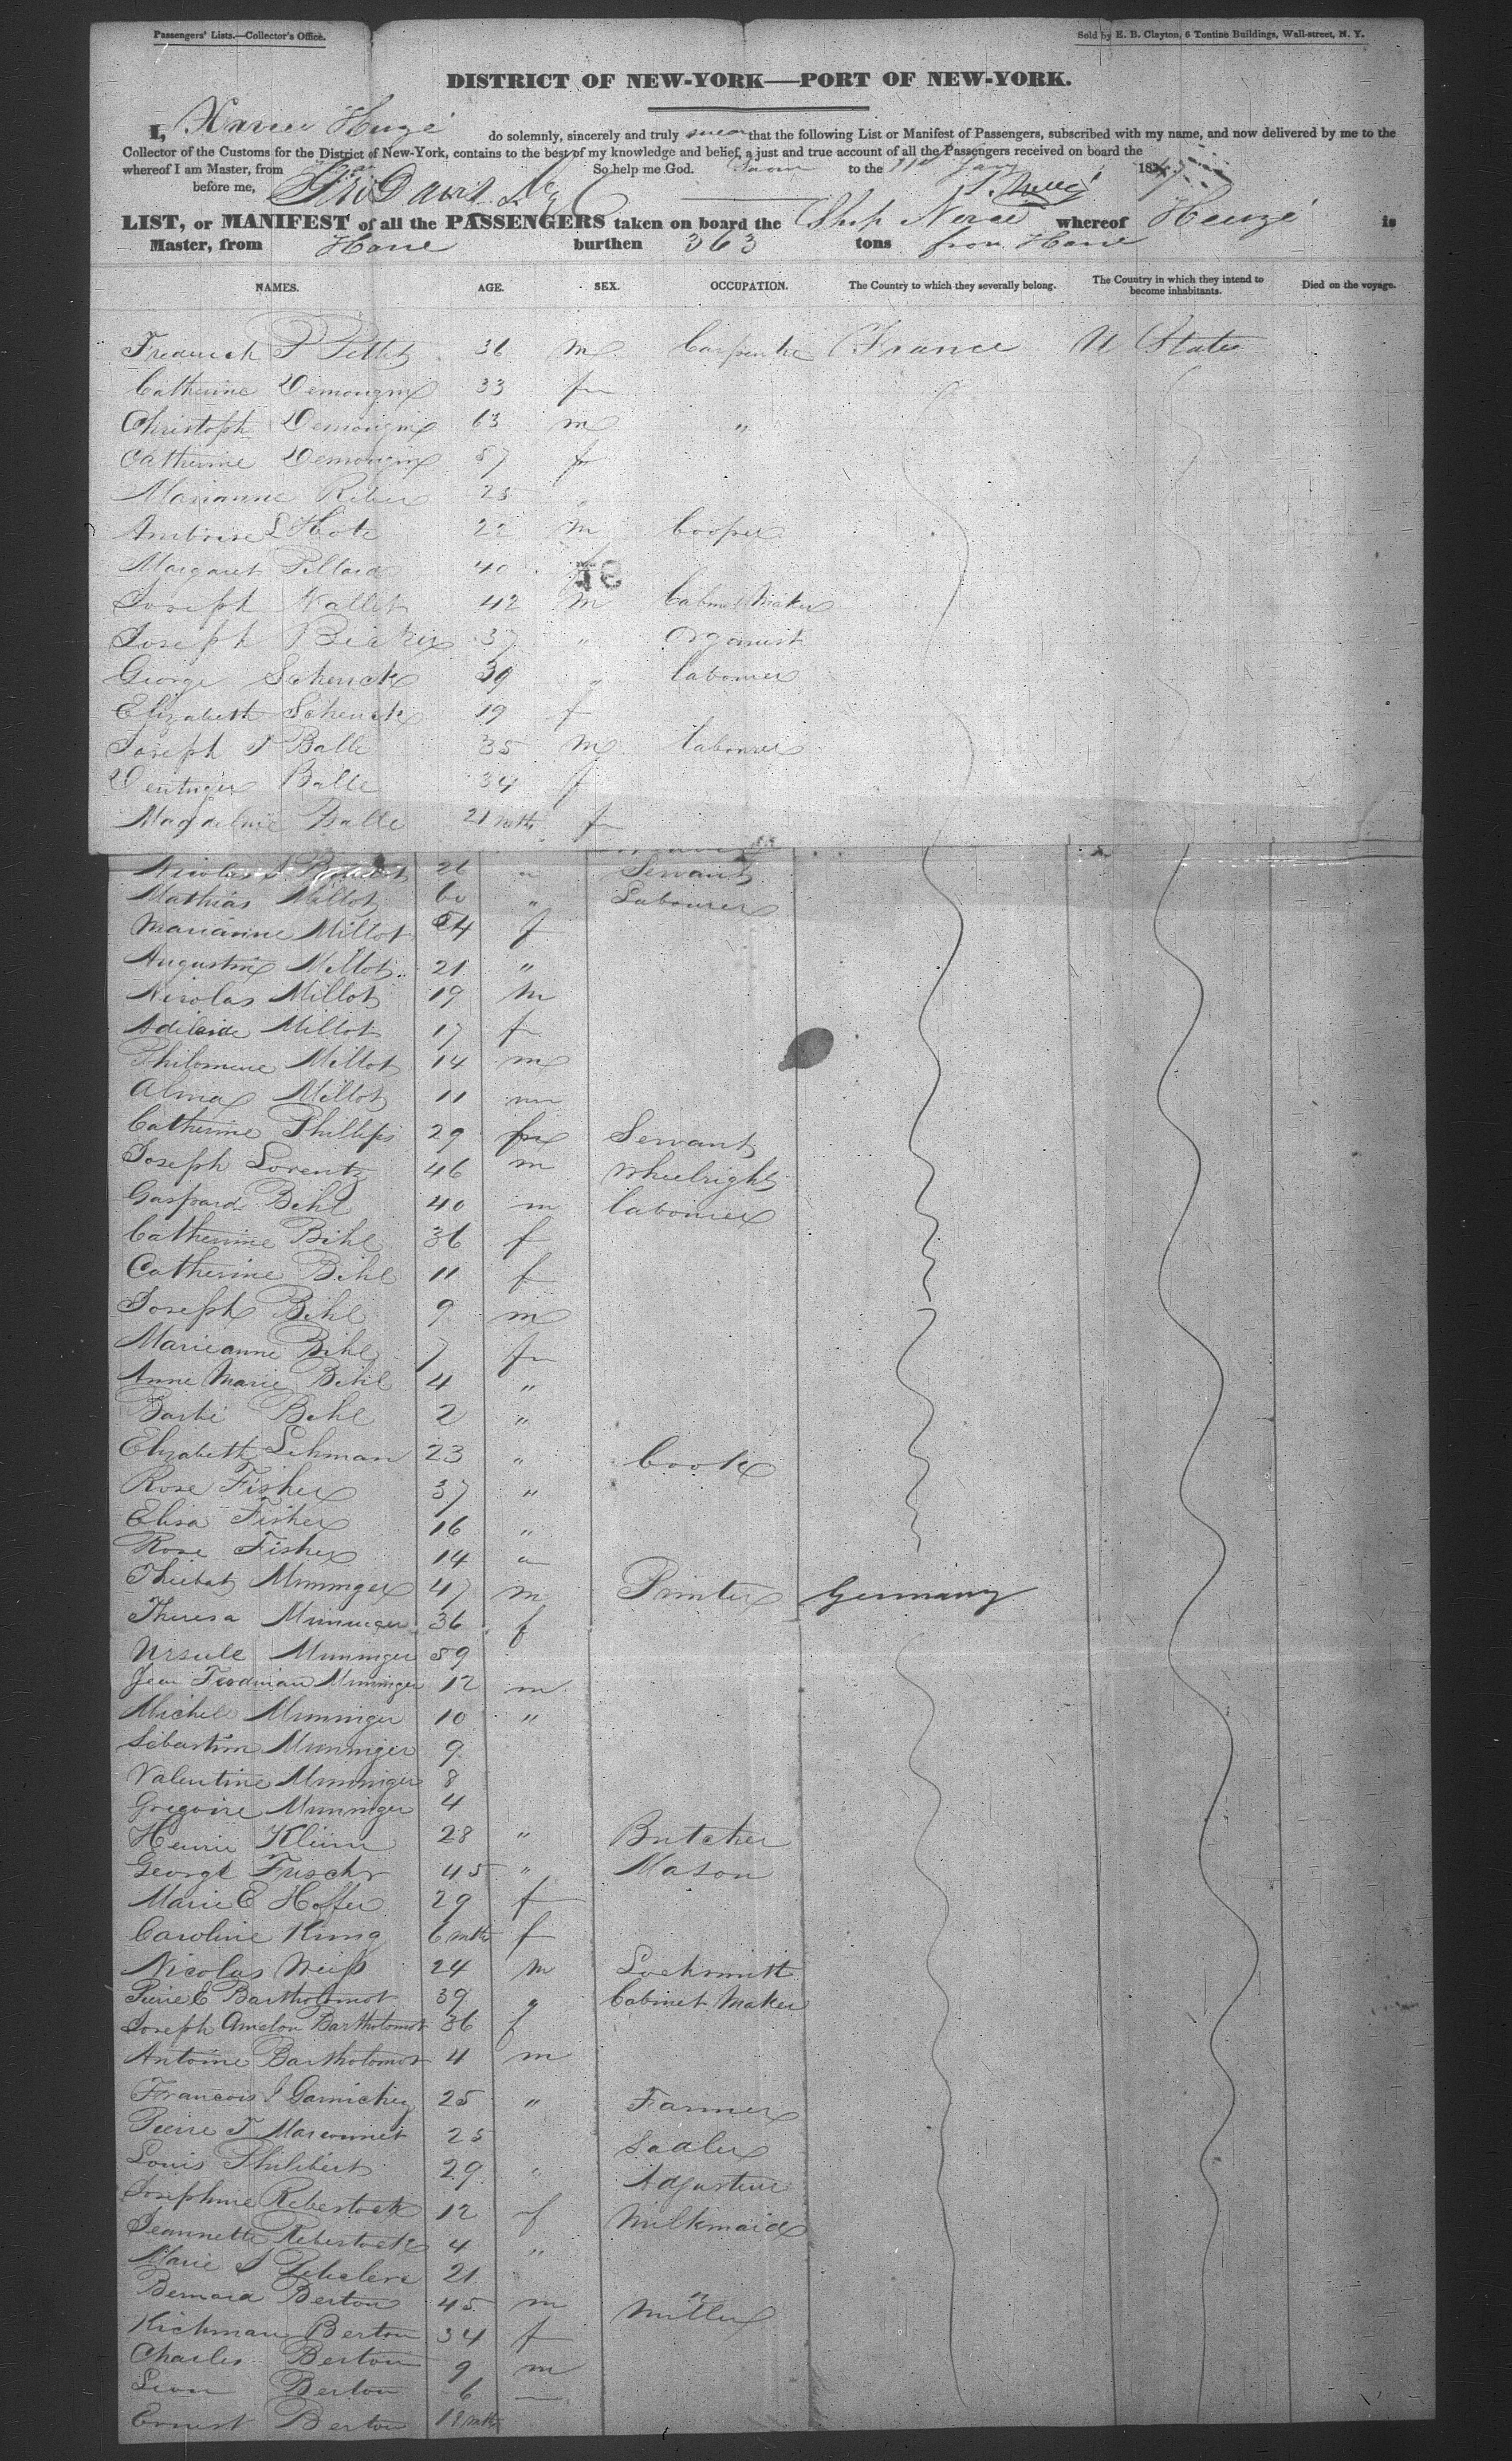 Passengers' Lists.—Collector's Office. Sold by E. B. Clayton, 6 Tontine Buildings, Wall-street, N. Y.
DISTRICT OF NEW-YORK—PORT OF NEW-YORK.
I, do solemnly, sincerely and truly swear that the following List or Manifest of Passengers, subscribed with my name, and now delivered by me to the
Collector of the Customs for the District of New-York, contains to the best of my knowledge and belief, a just and true account of all the Passengers received on board the
whereof I am Master, from So help me God. Sworn to the 11th Jany 184
before me,
LIST, or MANIFEST of all the PASSENGERS taken on board the Ship whereof is
Master, from Havre burthen 363 tons from Havre
NAMES. AGE. SEX. OCCUPATION. The Country to which they severally belong. The Country in which they intend to become inhabitants. Died on the voyage.
Frederick P Pettet 36 m Carpenter France U States
Catherine Demongin 33 f
Christoph Demongin 63 m "
Catherine Demongin 57 f
Marianne 25 "
Ambroise L'Hote 22 m Cooper
Margaret Pillard 40 f
Joseph Vallet 42 m Cabinet Maker
Joseph 37 " Organist
George Schenck 39 " labourer
Elizabeth Schenck 19 f
Joseph P Balle 35 m labourer
Balle 34 f
Magdeline Balle 21 mths f
Nicolas 26 " Servant
Mathias Millot 60 " Labourer
Marianne Millot 54 f
Augustin Millot 21 "
Nicolas Millot 19 m
Adelaide Millot 17 f
Philomene Millot 14 m
Alma Millot 11 m
Catherine Phillips 29 f Servant
Joseph Lorentz 46 m Wheelright
Gaspard Bihl 40 m labourer
Catherine Bihl 36 f
Catherine Bihl 11 f
Joseph Bihl 9 m
Marieanne Bihl 7 f
Anne Marie Bihl 4 "
Barbe Bihl 2 "
Elizabeth Lehman 23 " Cook
Rose Fisher 37 "
Elisa Fisher 16 "
Rose Fisher 14 "
Thiebat Munninger 47 m Printer Germany
Theresa Munninger 36 f
Ursule Munninger 59
Jean Ferdinan Munninger 12 m
Michele Munninger 10 "
Sebastim Munninger 9
Valentine Munninger 8
Gregoire Munninger 4
Henri Klein 28 " Butcher
George 45 " Mason
Marie E Hoffer 29 f
Caroline Kung 6 mths f
Nicolas Weiss 24 m Locksmith
Pierre C Bartholomot 39 " Cabinet Maker
Joseph Amelon Bartholomot 36 f
Antoine Bartholomot 4 m
Francois J 25 " Farmer
Pierre F Marconnet 25 Sadler
Louis Philibert 29 " Adjusteur
Josephine Reberstock 12 f Milkmaid
Jeannette Reberstock 4 "
Marie 21
Bernard Berton 45 m Miller
Richman Berton 34 f
Charles Berton 9 m
Leon Berton 6 —
Ernest Berton 18 mths